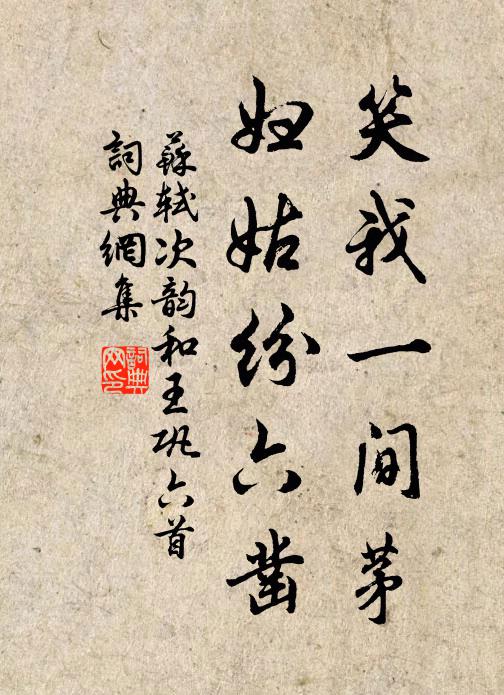 笑我一間茅
妇姑紛六凿
蘇軾次韵和王巩六首
詞典網集
詞典網印